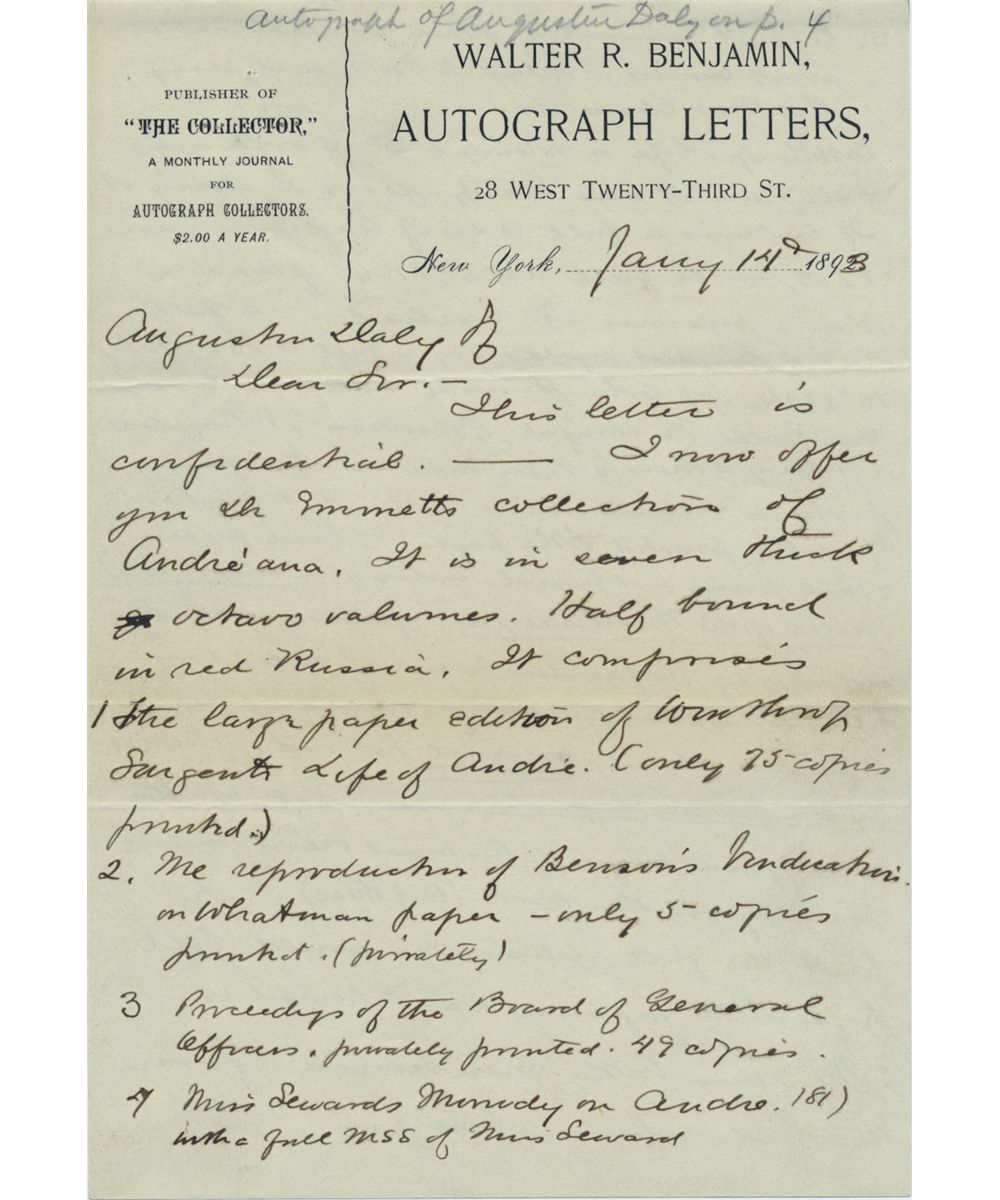 Autograph of Augustin Daly on p. 4
PUBLISHER OF
"THE COLLECTOR,"
A MONTHLY JOURNAL
FOR
AUTOGRAPH COLLECTORS.
$2.00 A YEAR.
WALTER R. BENJAMIN,
AUTOGRAPH LETTERS,
28 WEST TWENTY-THIRD ST.
New York, Jany 14 1893
Augustin Daly
Dear Sir. —
This letter is
confidential. — I now offer
you Dr Emmetts collection of
Andréana. It is in seven thick
octavo volumes. Half bound
in red Russia. It comprises
1 the large paper edition of Winthrop
Sargents Life of Andre. (only 75 copies
printed.)
2. The reproduction of Benson's Vindication
on Whatman paper — only 5 copies
printed. (privately)
3 Proceedgs of the Board of General
Officers. privately printed. 49 copies.
4 Miss Sewards Monody on Andre.
with a full MSS of Miss Seward